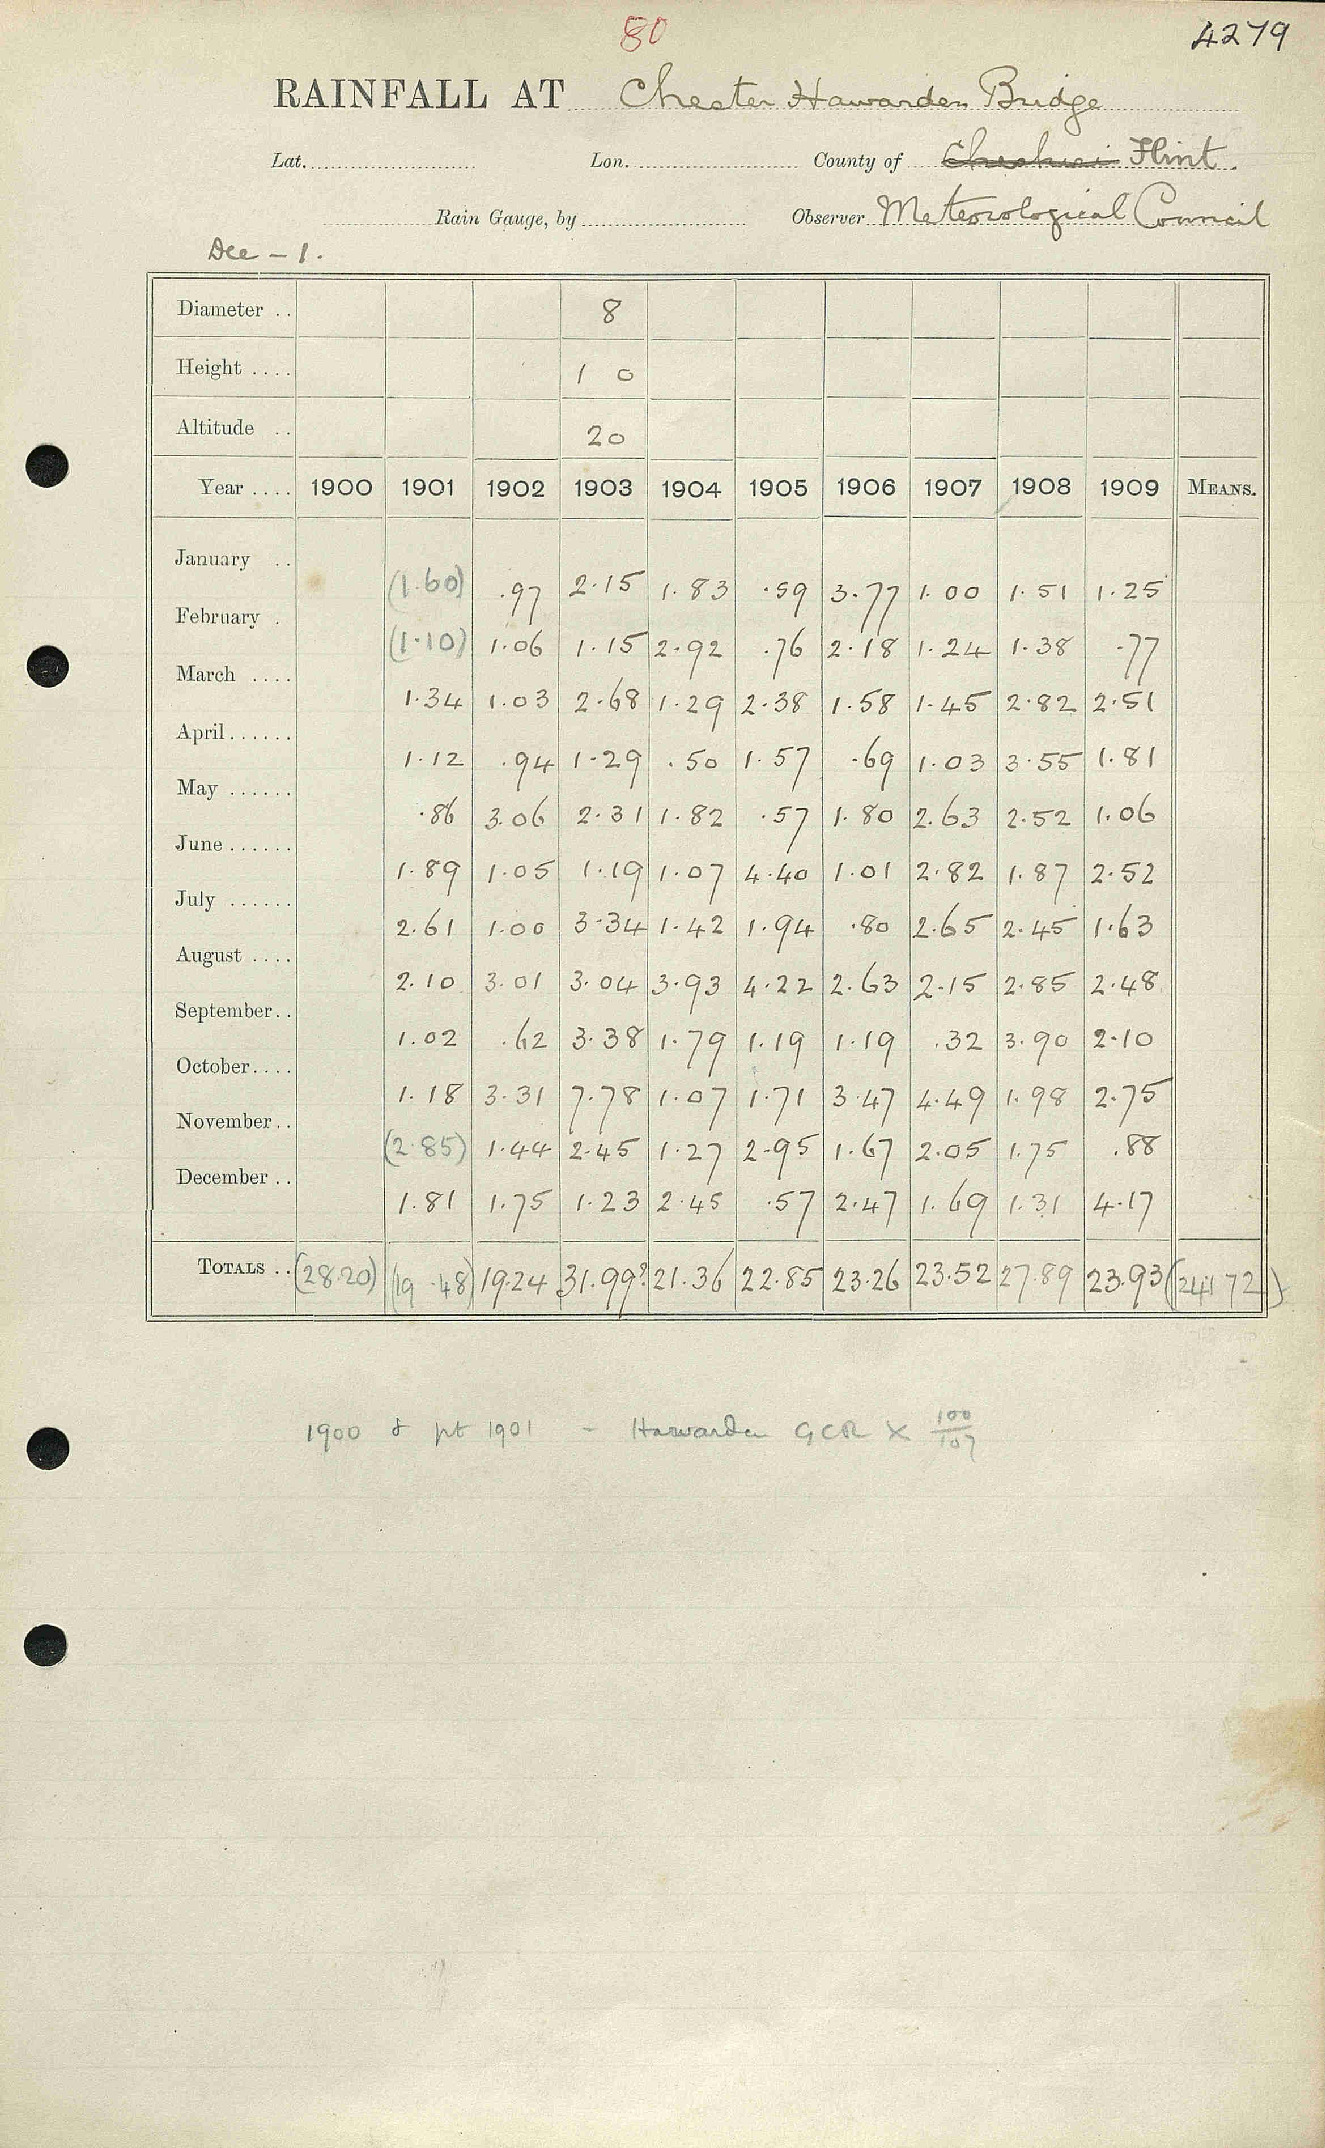 80
4279
RAINFALL AT Chester Hawarden Bridge
Lat. Lon. County of Cheshire Flint.
Rain Gauge, by Observer Meteorological Council
Dee – 1.
Diameter .. 8
Height .... 1 0
Altitude .. 20
Year .... 1900 1901 1902 1903 1904 1905 1906 1907 1908 1909 MEANS.
January .. (1.60) .97 2.15 1.83 .59 3.77 1.00 1.51 1.25
February . (1.10) 1.06 1.15 2.92 .76 2.18 1.24 1.38 .77
March .... 1.34 1.03 2.68 1.29 2.38 1.58 1.45 2.82 2.51
April...... 1.12 .94 1.29 .50 1.57 .69 1.03 3.55 1.81
May ...... .86 3.06 2.31 1.82 .57 1.80 2.63 2.52 1.06
June...... 1.89 1.05 1.19 1.07 4.40 1.01 2.82 1.87 2.52
July ...... 2.61 1.00 3.34 1.42 1.94 .80 2.65 2.45 1.63
August .... 2.10 3.01 3.04 3.93 4.22 2.63 2.15 2.85 2.48
September.. 1.02 .62 3.38 1.79 1.19 1.19 .32 3.90 2.10
October.... 1.18 3.31 7.78 1.07 1.71 3.47 4.49 1.98 2.75
November.. (2.85) 1.44 2.45 1.27 2.95 1.67 2.05 1.75 .88
December .. 1.81 1.75 1.23 2.45 .57 2.47 1.69 1.31 4.17
TOTALS .. (28.20) (19.48) 19.24 31.99? 21.36 22.85 23.26 23.52 27.89 23.93 (24.172)
1900 & pt 1901 – Hawarden GCR × 100/107